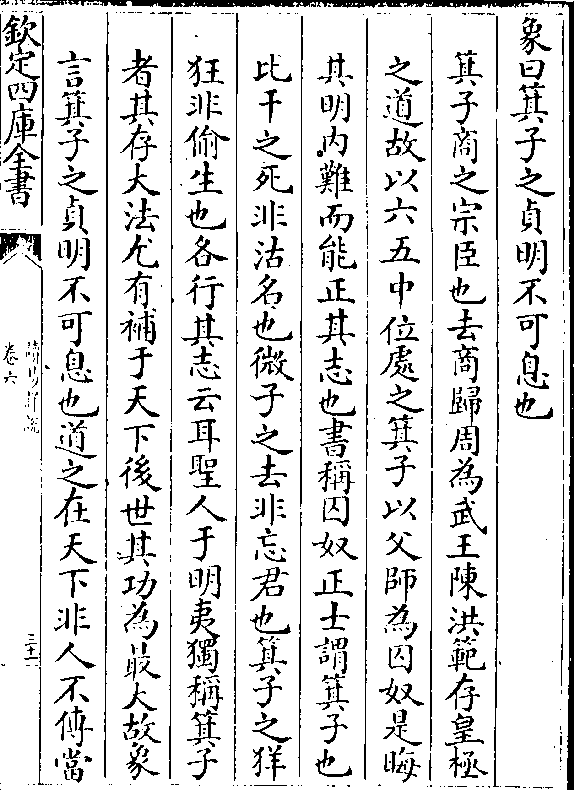 象曰箕子之貞明不可息也
箕子商之宗臣也去商歸周為武王陳洪範存皇極
之道故以六五中位處之箕子以父師為囚奴是晦
其明内難而能正其志也書稱囚奴正士謂箕子也
比干之死非沽名也微子之去非忘君也箕子之佯
狂非偷生也各行其志云耳聖人于明夷獨稱箕子
者其存大法尤有補于天下後世其功為最大故象
言箕子之貞明不可息也道之在天下非人不傳當
欽定四庫全書
卷六